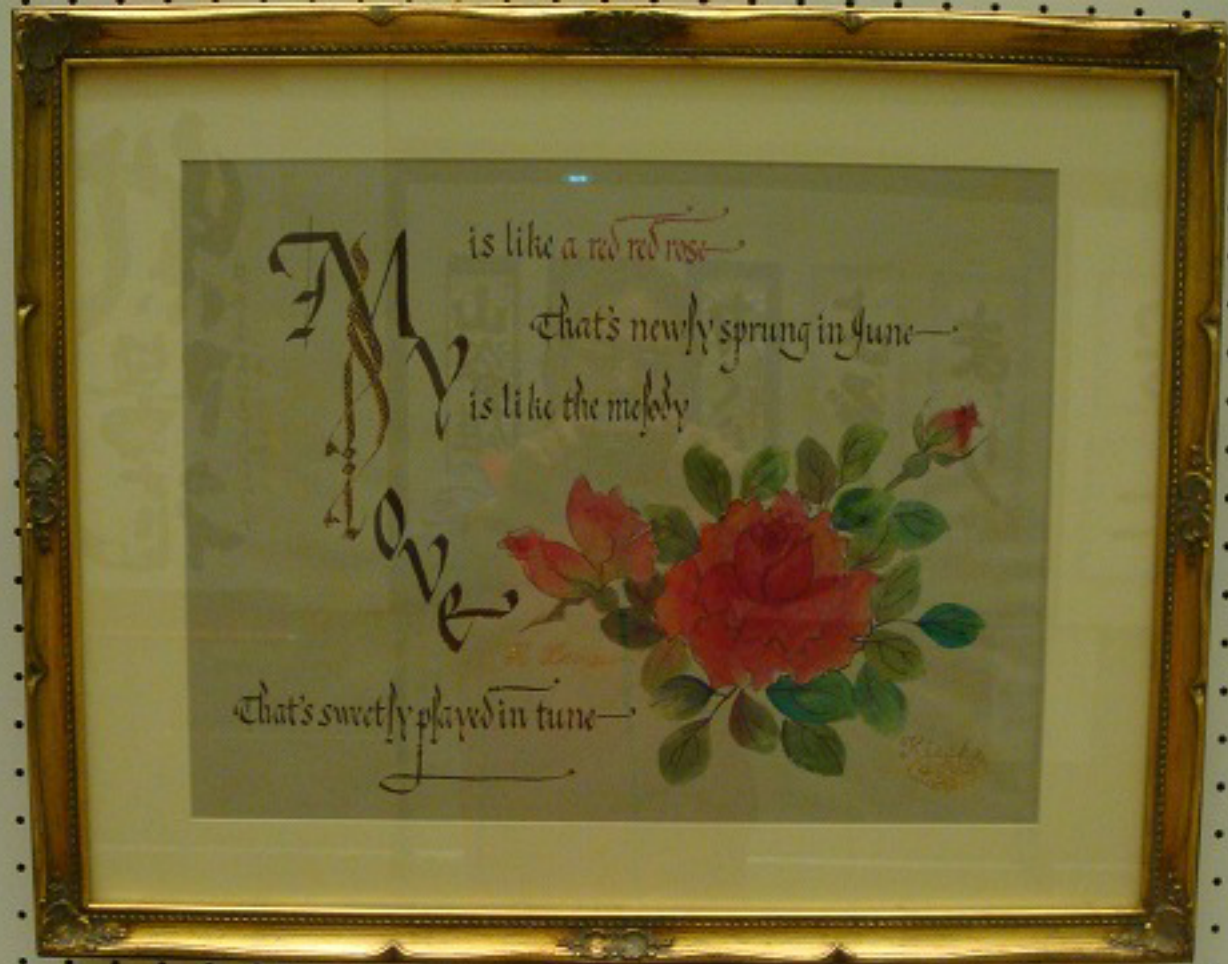 My love
is like a red red rose
That's newly sprung in June
is like the melody
That's sweetly played in tune